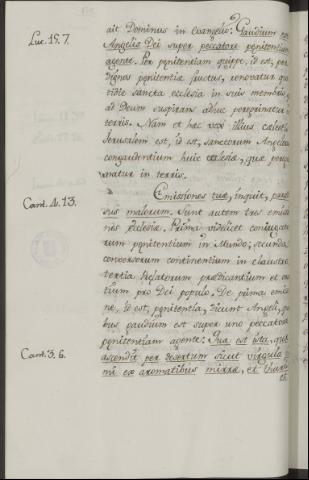 Luc. 15. 7.
ait Dominus in Evangelio: Gaudium est
Angelis Dei super peccatore pęnitentiam
agente. Per pęnitentiam quippe, id est, per
dignos pęnitentia fructus, renovatur quo
tidie sancta ecclesia in suis membris,
ad Deum suspirans adhuc peregrinatur
terris. Nam et hac vox illius cælestis
Jerusalem est, id est, sanctorum Angelorum
congaudentium huic ecclesiæ, quæ
natur in terris.
Cant. 4. 13.
Emissiones tuæ, inquit, para
sus malorum. Sunt autem tres emissio
nes ecclesiæ. Prima videlicet conjugato
rum pęnitentium in Mundo; secunda
conversorum continentium in claustro
tertia Prælatorum prædicantium et
tium pro Dei populo. De prima emissio
ne, id est, pęnitentia, dicunt Angeli,
bus gaudium est super uno peccatore
pęnitentiam agente: Quæ est ista, quæ
Cant. 3. 6.
ascendit per desertum sicut virgula
mi ex aromatibus mirræ, et thuris
et